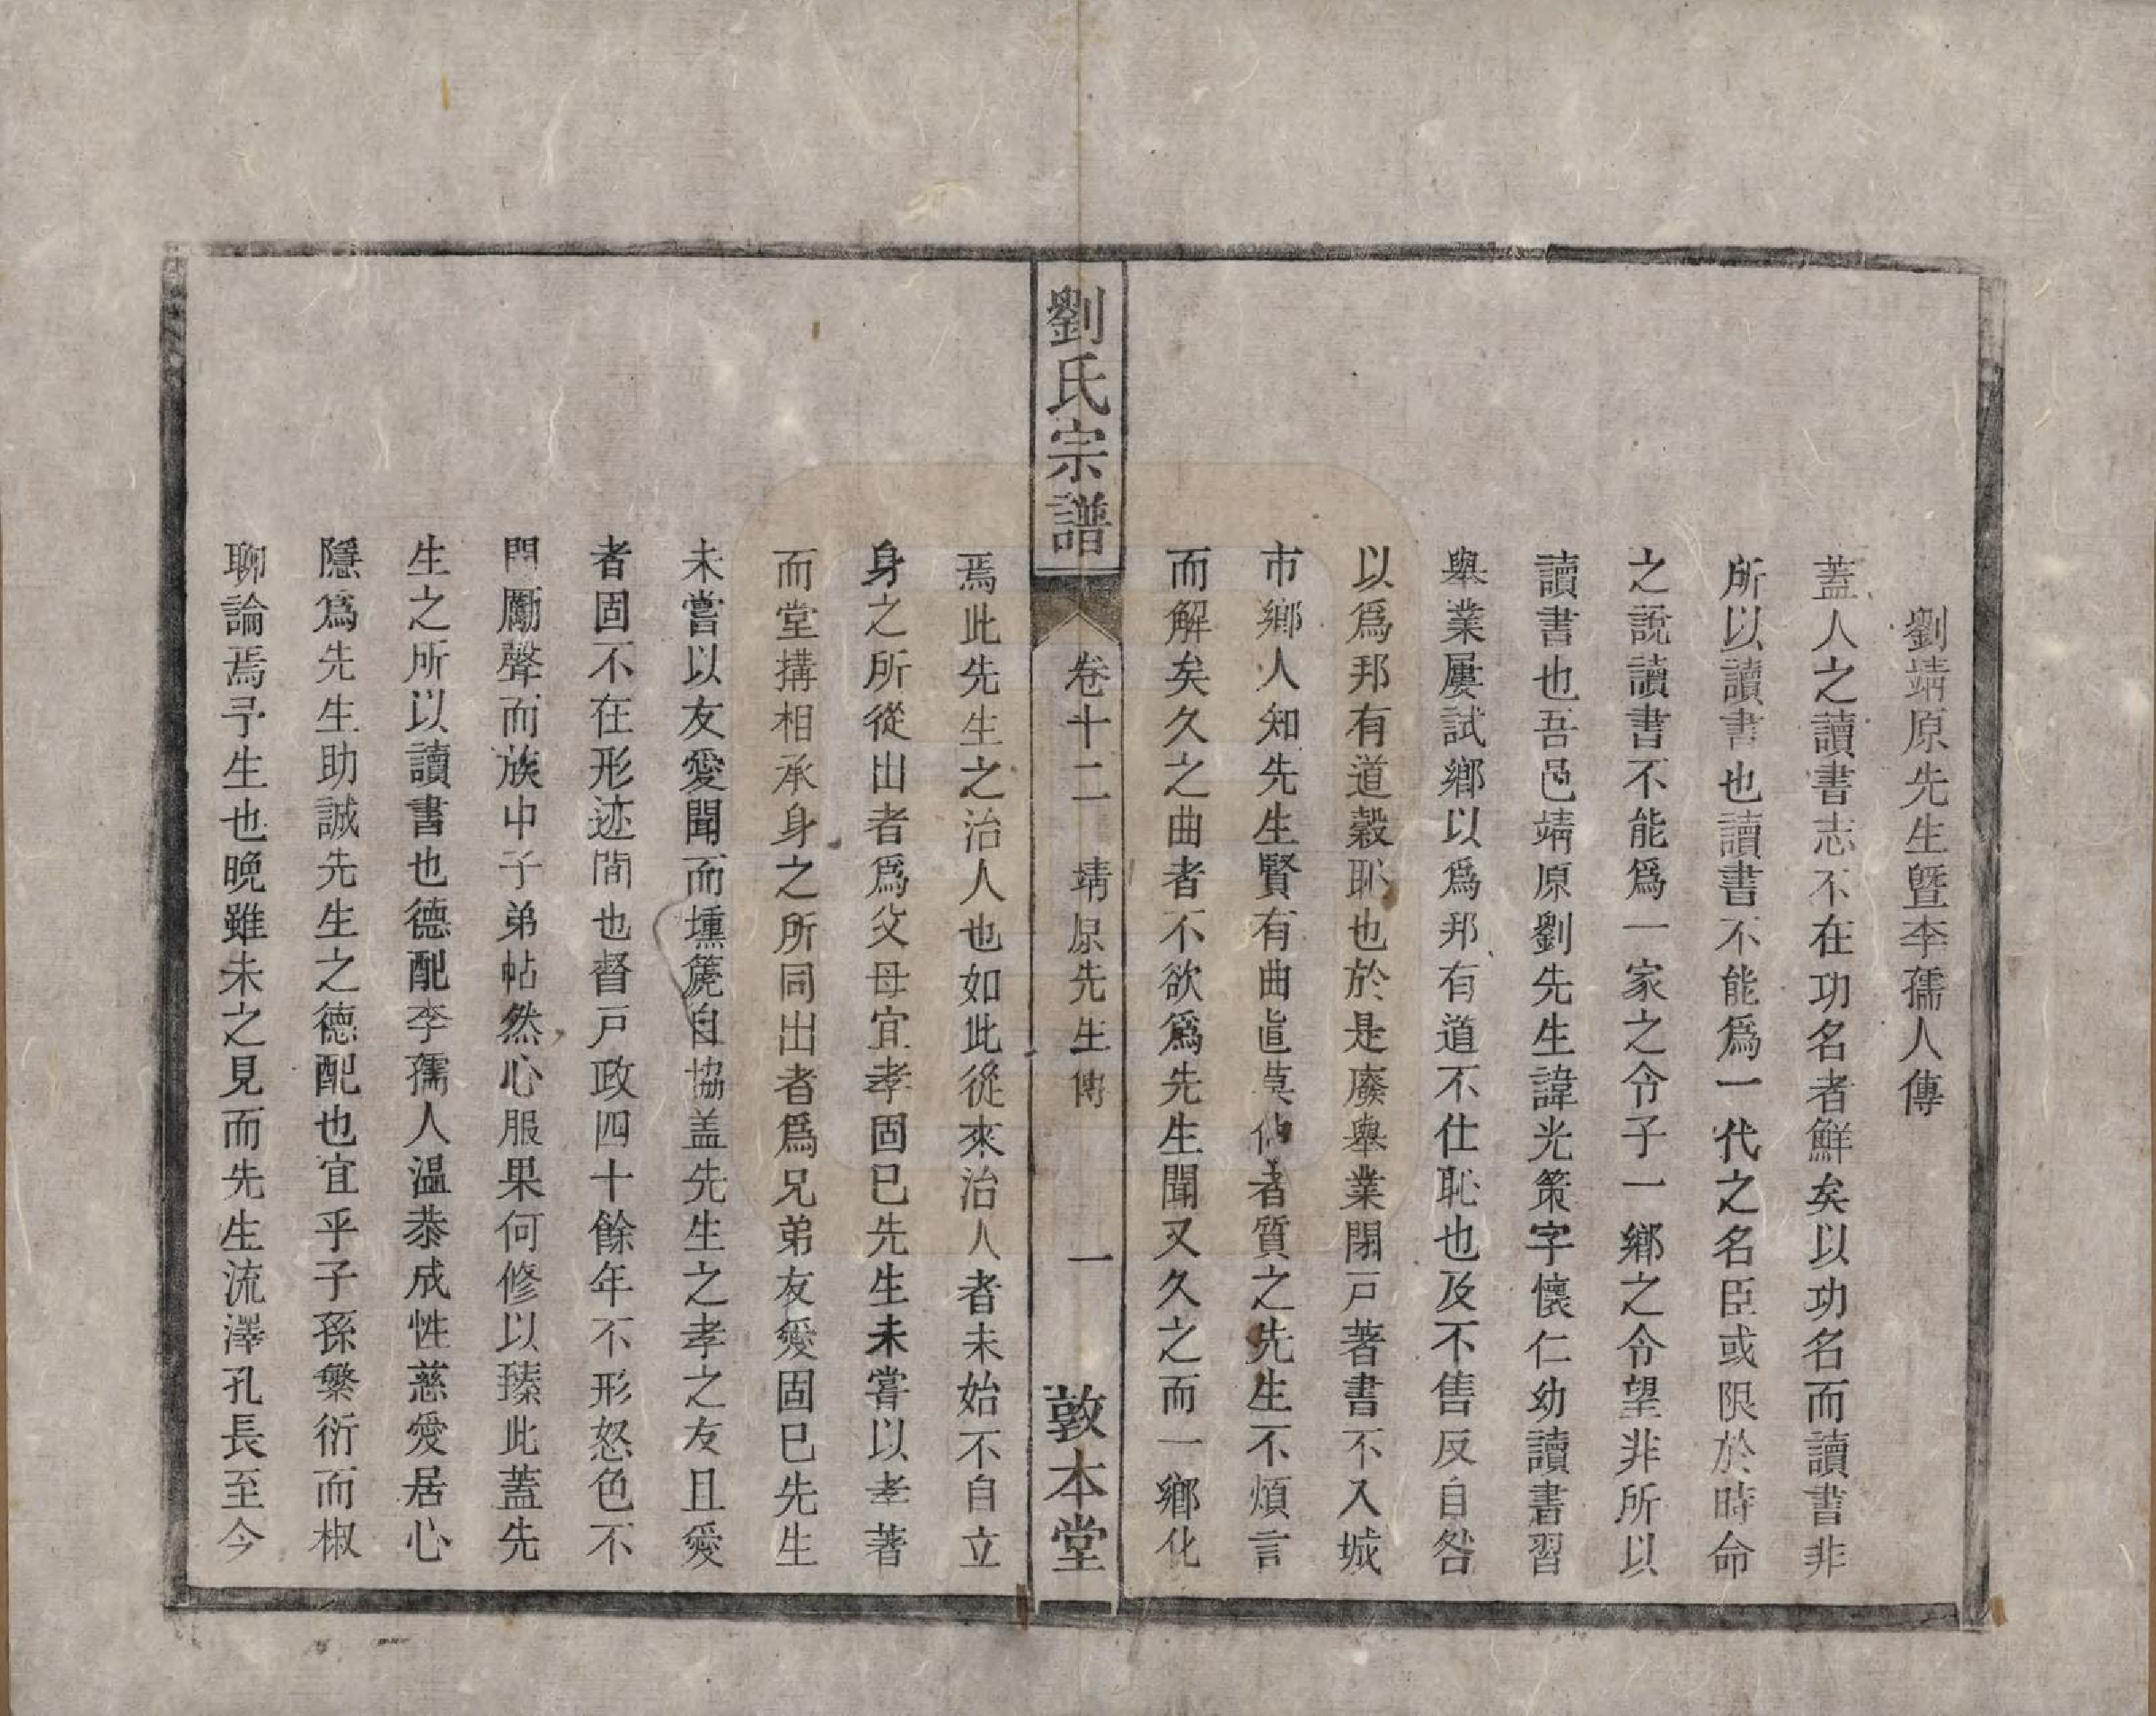 劉靖原先生暨李孺人傳
蓋人之讀書志不在功名者鮮矣以功名而讀書非
所以讀書也讀書不能爲一代之名臣或限於時命
之說讀書不能爲一家之令子一鄉之令望非所以
讀書也吾邑靖原劉先生諱光策字懷仁幼讀書習
舉業屢試鄉以爲邦有道不仕恥也及不售反自咎
以爲邦有道穀恥也於是廢舉業閉戸著書不入城
市鄉人知先生賢有曲直莫伸者質之先生不煩言
而解矣久之曲者不欲爲先生聞又久之而一鄉化
劉氏宗譜
卷十二 靖原先生傳 一 敦本堂
焉此先生之治人也如此從來治人者未始不自立
身之所從出者爲父母宜孝固已先生未嘗以孝著
而堂搆相承身之所同出者爲兄弟友愛固已先生
未嘗以友愛聞而壎篪自協盖先生之孝之友且愛
者固不在形迹間也督戸政四十餘年不形怒色不
問厲聲而族中子弟帖然心服果何修以臻此蓋先
生之所以讀書也德配李孺人溫恭成性慈愛居心
隱爲先生助誠先生之德配也宜乎子孫繁衍而椒
聊論焉予生也晚雖未之見而先生流澤孔長至今